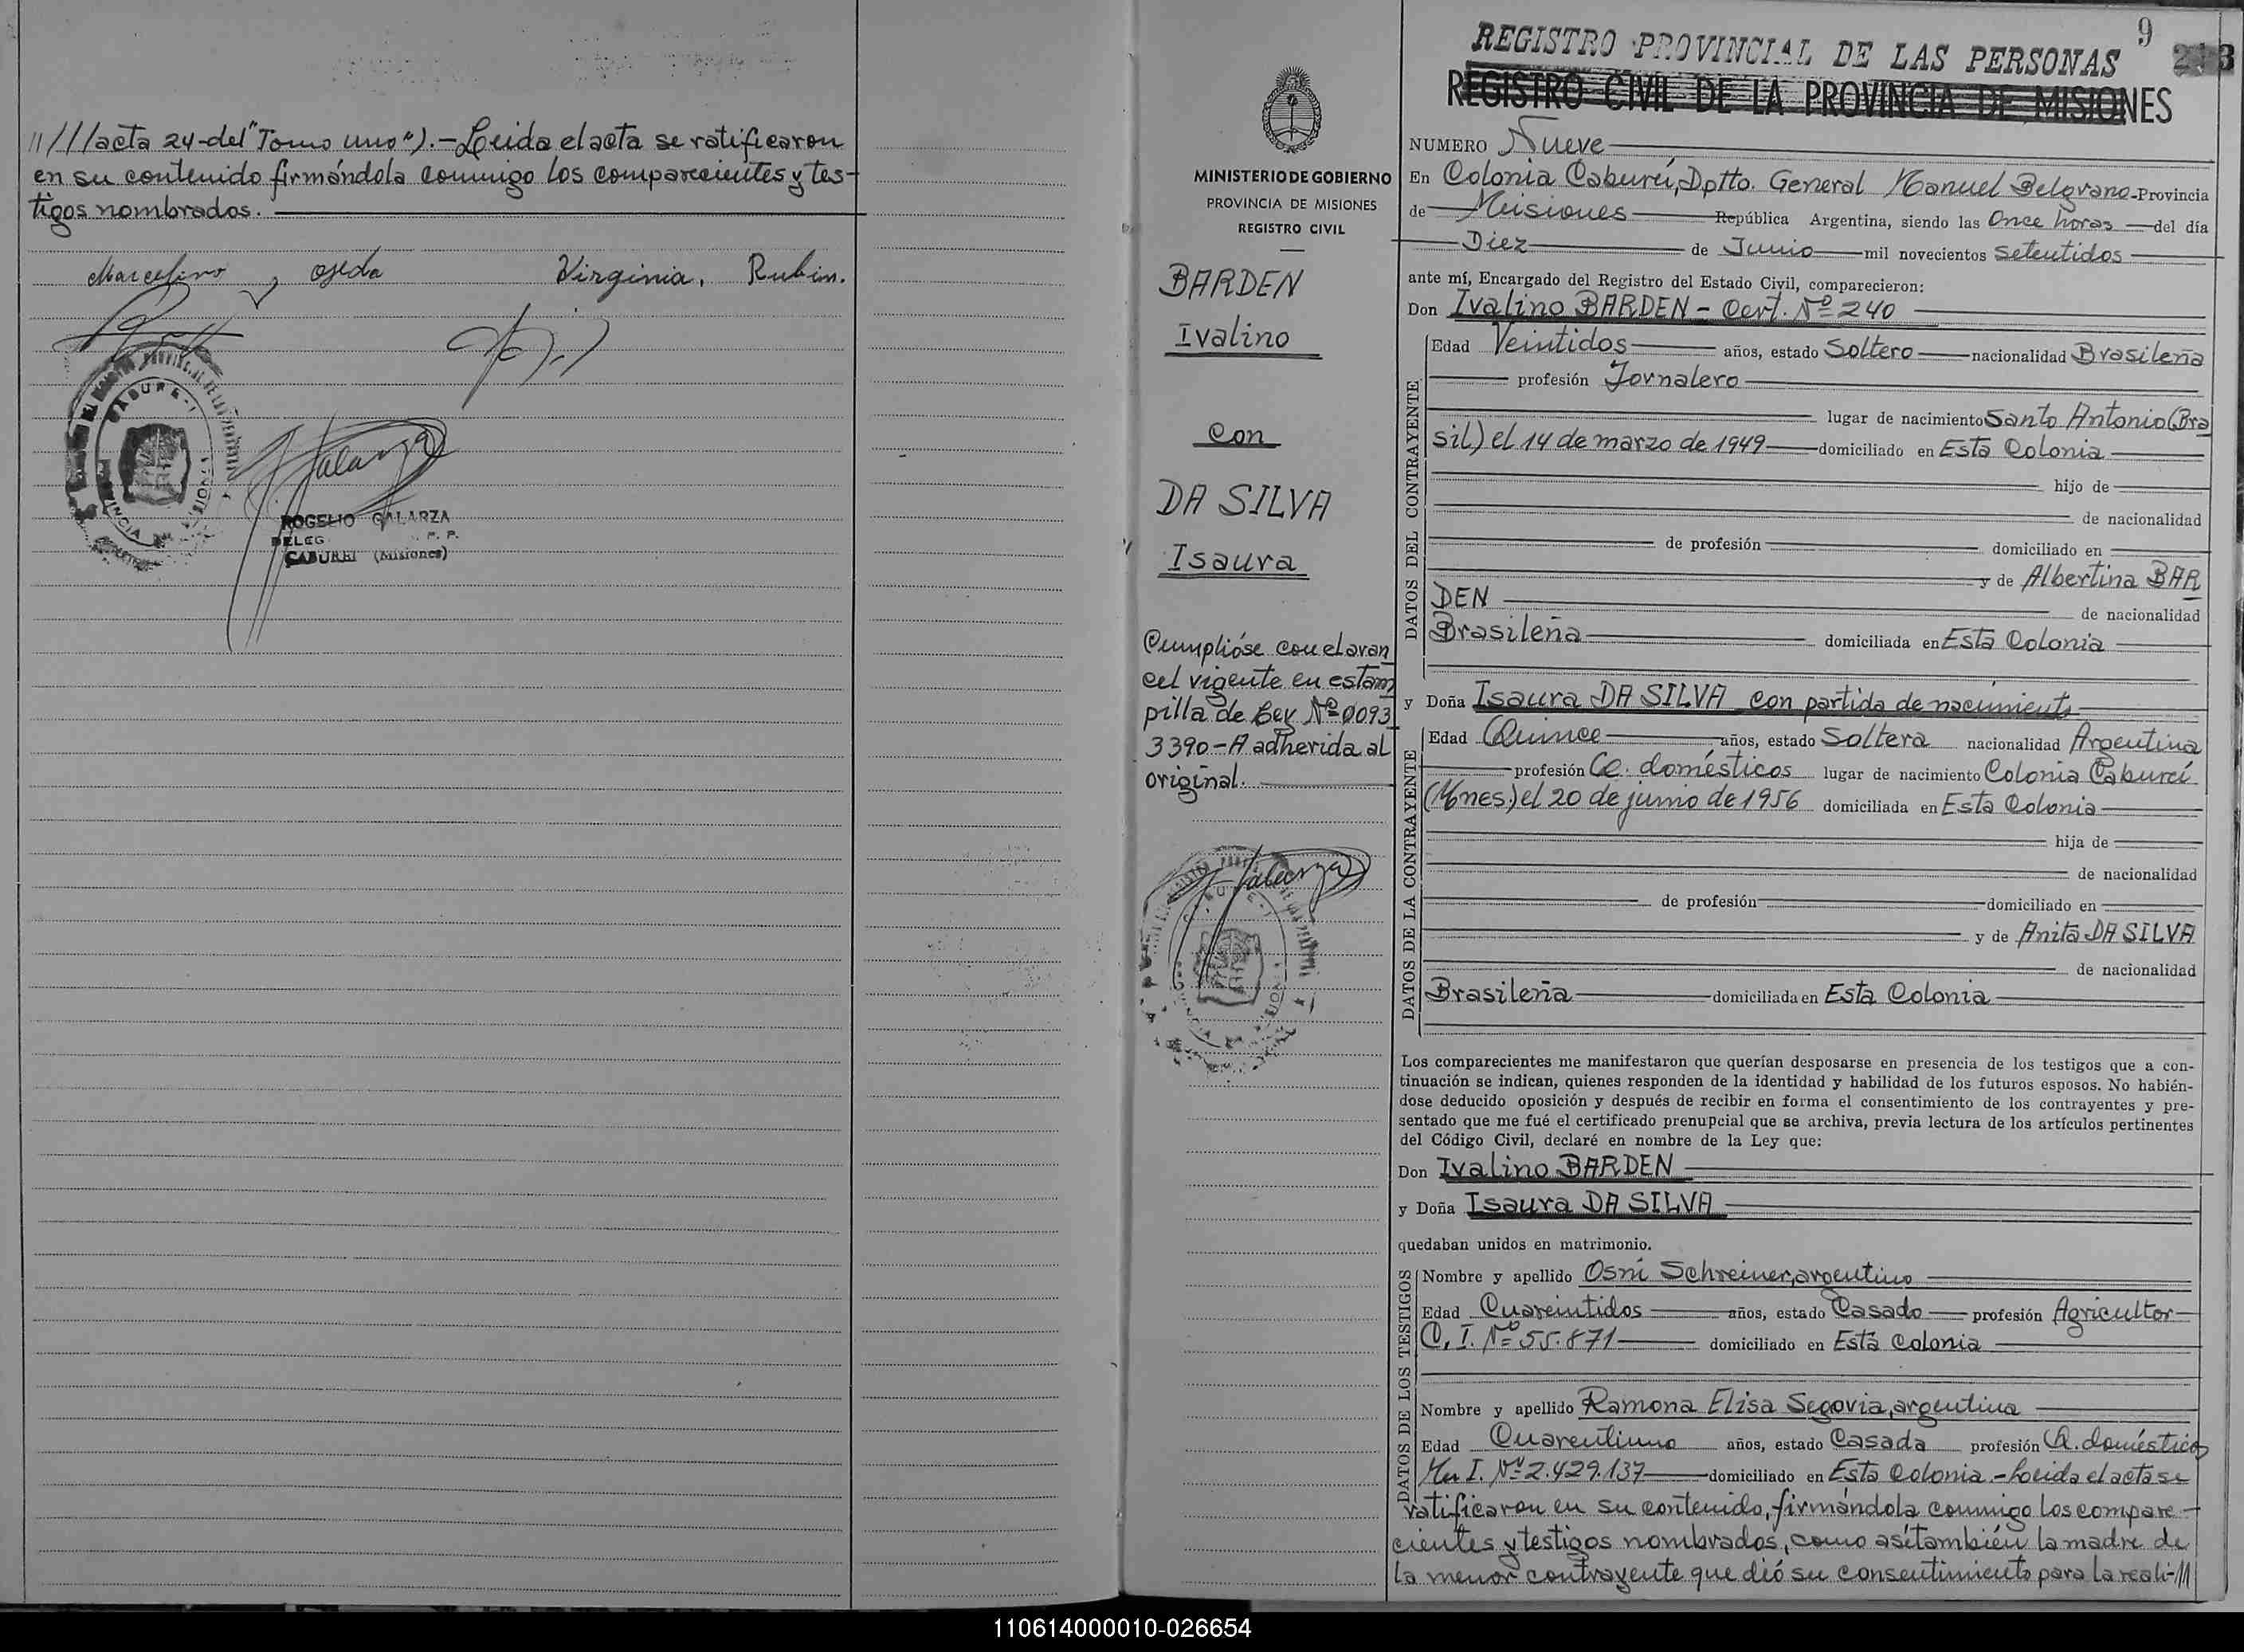 ////acta 24-del "Tomo uno").-Leida el acta se ratificaron
en su contenido firmándola conmigo los comparecientes y tes-
tigos nombrados.
Marcelino ojeda
Virginia, Rubin.
CABURE-I
Galarza
ROGELIO GALARZA
DELEG. R. P.
CABUREI (Misiones)
MINISTERIO DE GOBIERNO
PROVINCIA DE MISIONES
REGISTRO CIVIL
BARDEN
Ivalino
con
DA SILVA
Isaura
Cumplióse con el aran
cel vigente en estam
pilla de Ley Nº 0093
3390-A adherida al
original.
Galarza
9
213
REGISTRO PROVINCIAL DE LAS PERSONAS
REGISTRO CIVIL DE LA PROVINCIA DE MISIONES
NUMERO Nueve
En Colonia Cabureí, Dptto. General Manuel Belgrano-Provincia
de Misiones República Argentina, siendo las Once horas del día
Diez de Junio mil novecientos setentidos
ante mí, Encargado del Registro del Estado Civil, comparecieron:
Don Ivalino BARDEN - Cert. Nº 240
DATOS DEL CONTRAYENTE
Edad Veintidos años, estado Soltero nacionalidad Brasileña
profesión Jornalero
lugar de nacimiento Santo Antonio (Bra
sil) el 14 de marzo de 1949 domiciliado en Esta Colonia
hijo de
de nacionalidad
de profesión domiciliado en
y de Albertina BAR
DEN de nacionalidad
Brasileña domiciliada en Esta Colonia
y Doña Isaura DA SILVA con partida de nacimiento
DATOS DE LA CONTRAYENTE
Edad Quince años, estado Soltera nacionalidad Argentina
profesión Q. domésticos lugar de nacimiento Colonia Caburei
(Mnes.) el 20 de junio de 1956 domiciliada en Esta Colonia
hija de
de nacionalidad
de profesión domiciliado en
y de Anita DA SILVA
de nacionalidad
Brasileña domiciliada en Esta Colonia
Los comparecientes me manifestaron que querían desposarse en presencia de los testigos que a con-
tinuación se indican, quienes responden de la identidad y habilidad de los futuros esposos. No habién-
dose deducido oposición y después de recibir en forma el consentimiento de los contrayentes y pre-
sentado que me fué el certificado prenupcial que se archiva, previa lectura de los artículos pertinentes
del Código Civil, declaré en nombre de la Ley que:
Don Ivalino BARDEN
y Doña Isaura DA SILVA
quedaban unidos en matrimonio.
DATOS DE LOS TESTIGOS
Nombre y apellido Osni Schreiner, argentino
Edad Cuareintidos años, estado Casado profesión Agricultor
C. I. Nº 55.871 domiciliado en Esta Colonia
Nombre y apellido Ramona Elisa Segovia, argentina
Edad Cuarentiuno años, estado Casada profesión Q. domésticos
M. I. Nº 2.429.137 domiciliado en Esta Colonia.-Leida el acta se
ratificaron en su contenido, firmándola conmigo los compare-
cientes y testigos nombrados, como asítambién la madre de
la menor contrayente que dió su consentimiento para la reali-///
110614000010-026654